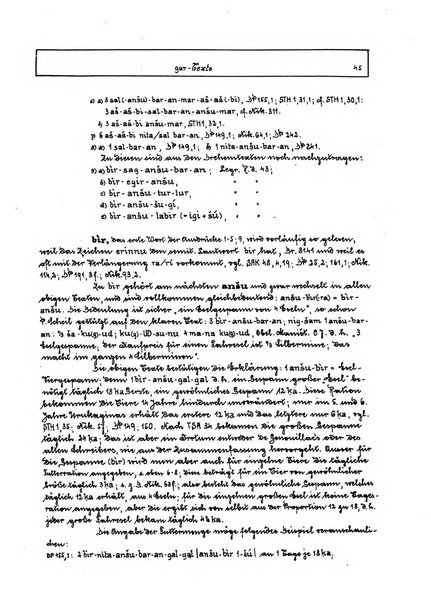 gur-Texte 45
s) a) 3 sal(-anšu)-bar-an-mar-aš-aš(-bi), DP 155,1; STH 1,31,1; cf. STH 1,30,1:
3 aš-bi-sal-bar-an-anšu-mar, cf. Nik. 311.
3 aš-bi anšu-mar, STH 1,32,1.
p 6 aš-aš-bi nita/sal bar-an, DP 149,1; Nik. 64,1; DP 242.
a) 1 sal-bar-an, DP 149,1; 1 nita-anšu-bar-an, DP 241.
Zu diesen sind aus den Drehemtexten noch nachzutragen:
a) bìr-sag-anšu-bar-an; Legr. T.d. 43;
b) bìr-egir-anšu, " "
c) bìr-anšu-tur-tur, " "
d) bìr-anšu-šu-gí, " "
e) bìr-anšu-labir (=igi+šú), " "
bìr, das erste Wort der Ausdrücke 1-5; 9, wird vorläufig so gelesen,
weil das Zeichen erinnu den semit. Lautwert bir hat, Br. 8141 und weil es
oft mit der Verlängerung ra/ri vorkommt, vgl. SAK 48, 4,19; DP 25,2; 161,1; Nik.
114,2; DP 191, 8f.; Nik. 93,2.
Zu bìr gehört am nächsten anšu und zwar wechselt in allen
obigen Texten, und sind vollkommen gleichbedeutend: anšu-bìr(-ra) = bìr-
anšu. Die Bedeutung ist sicher „ein Eselgespann von 4 Eseln“, so schon
P. Scheil gestützt auf den klaren Text: 3 bìr-anšu-bar-an; níg-šám 1 anšu-bar-
an: ⅔ ša-ku(g)-ud; ku(g) UD-su-nu 4 ma-na ku(g)-ud, Obél. Maništ. C 7. d. h. „3
Eselgespanne, der Kaufpreis für einen Jahresel ist ⅔ Silbermine; das
macht im ganzen 4 Silberminen“.
Die obigen Texte bestätigen die Erklärung: 1 anšu-bìr = Esel-
Viergespann, denn 1 bìr-anšu-gal-gal d.h. ein Gespann großer Esel be-
nötigt täglich 18 ka Gerste, ein gewöhnliches Gespann 12 ka. Diese Ration
bekommen die Tiere 4 Jahre hindurch unverändert; nur im 5. und 6.
Jahre Urukaginas erhält das erstere 12 ka und das letztere nur 6 ka, vgl.
STH 1,35; Nik. 57; DP 149; 150. Nach TSA 34 bekamen die großen Gespanne
täglich 24 ka; das ist aber ein Irrtum entweder de Genouillacs oder des
alten Schreibers, wie aus der Zusammenfassung hervorgeht. Ausser für
die Gespanne (bìr) wird nun aber auch für einzelne Tiere die tägliche
Futterration angegeben, s. oben 6-8, diese beträgt für ein Tier von gewöhnlicher
Größe täglich 3 ka; s. z. B. Nik. 63f.; also besteht das Gespann, welches
täglich 12 ka erhält, aus 4 Eseln; für die einzelnen großen Esel ist keine Tages-
ration angegeben, aber die ergibt sich von selbst aus der Proportion 12 zu 18, d. h.
jeder große Jahresel bekam täglich 4½ ka.
Die Angabe der Futtermenge möge folgendes Beispiel veranschauli-
chen:
DP 155,1: 2 bìr-nita-anšu-bar-an-gal-gal | anšu-bìr 1-šú | an 1 Tage je 18 ka;